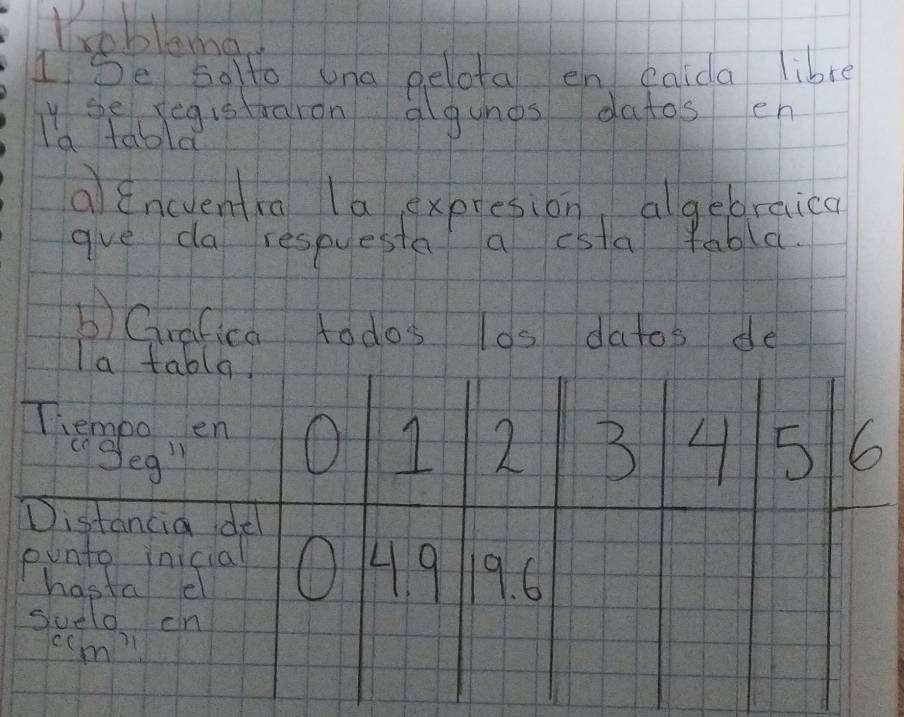 Problema.
1 Se solto una pelota en caida libre
y se registraron algunos datos en
la tabla
a) Encuentra la expresión algebraica
que da respuesta a esta tabla.
b) Grafica todos los datos de
la tabla.
Tiempo en "Seg" 0 1 2 3 4 5 6
Distancia del
punto inicial
hasta el
suelo en
"m". 0 4.9 19.6